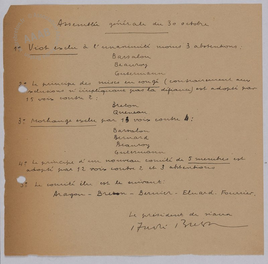 Assemblée générale du 30 octobre
1º Vrot exclu à l'unanimité moins 3 abstentions :
Barsalou
Beauroy
Guetermann
2º Le principe des mises en congé (conformément aux
est adopté par
15 voix contre 2 :
Breton
Queneau
3º exclu par 15 voix contre 4 :
Barsalou
Bernard
Beauroy
Guetermann
4º Le principe d'un nouveau comité de 5 membres est
adopté par 12 voix contre 2 et 3 abstentions
5º Le comité élu est le suivant :
Aragon - Breton - Bernier - Eluard - Fourrier.
Le président de séance
André Breton